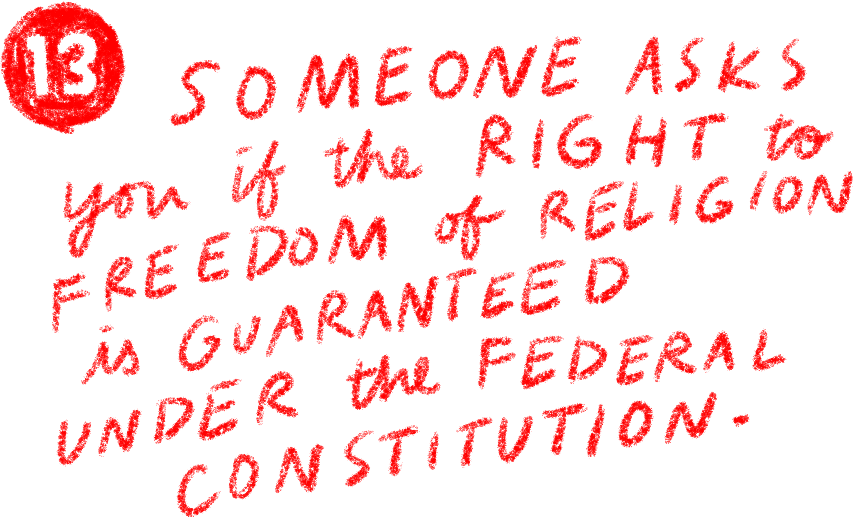 13 SOMEONE ASKS
you if the RIGHT to
FREEDOM of RELIGION
is GUARANTEED
UNDER the FEDERAL
CONSTITUTION.